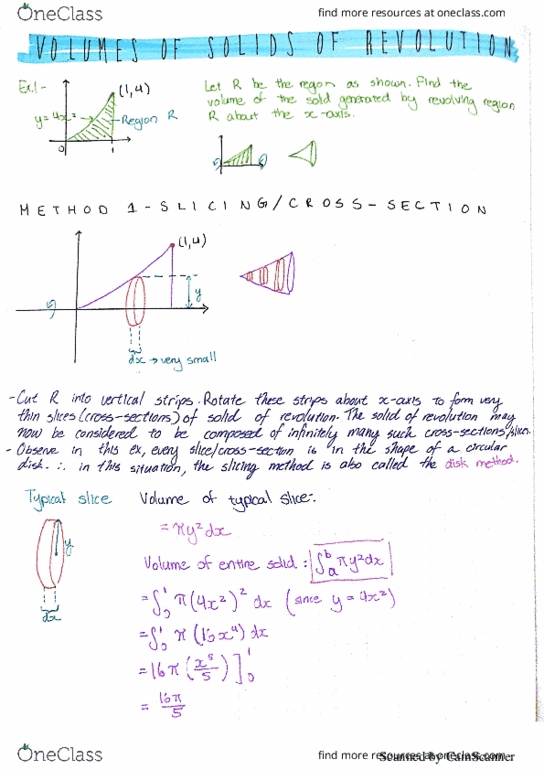 OneClass
find more resources at oneclass.com
VOLUMES OF SOLIDS OF REVOLUTION
Ex.1-
(1,4)
y=4x²
Region R
0
1
Let R be the region as shown. Find the
volume of the solid generated by revolving region
R about the x-axis.
METHOD 1 - SLICING/CROSS-SECTION
(1,4)
y
dx → very small
-Cut R into vertical strips. Rotate these strips about x-axis to form very
thin slices (cross-sections) of solid of revolution. The solid of revolution may
now be considered to be composed of infinitely many such cross-sections/slices.
- Observe in this ex, every slice/cross-section is in the shape of a circular
disk. ∴ in this situation, the slicing method is also called the disk method.
Typical slice
Volume of typical slice:
y
dx
= πy²dx
Volume of entire solid: ∫ₐᵇ πy²dx
= ∫₀¹ π(4x²)² dx (since y = 4x²)
= ∫₀¹ π(16x⁴)dx
= 16π (x⁵/5) ]₀¹
= 16π/5
OneClass
find more resources at oneclass.com
Scanned by CamScanner